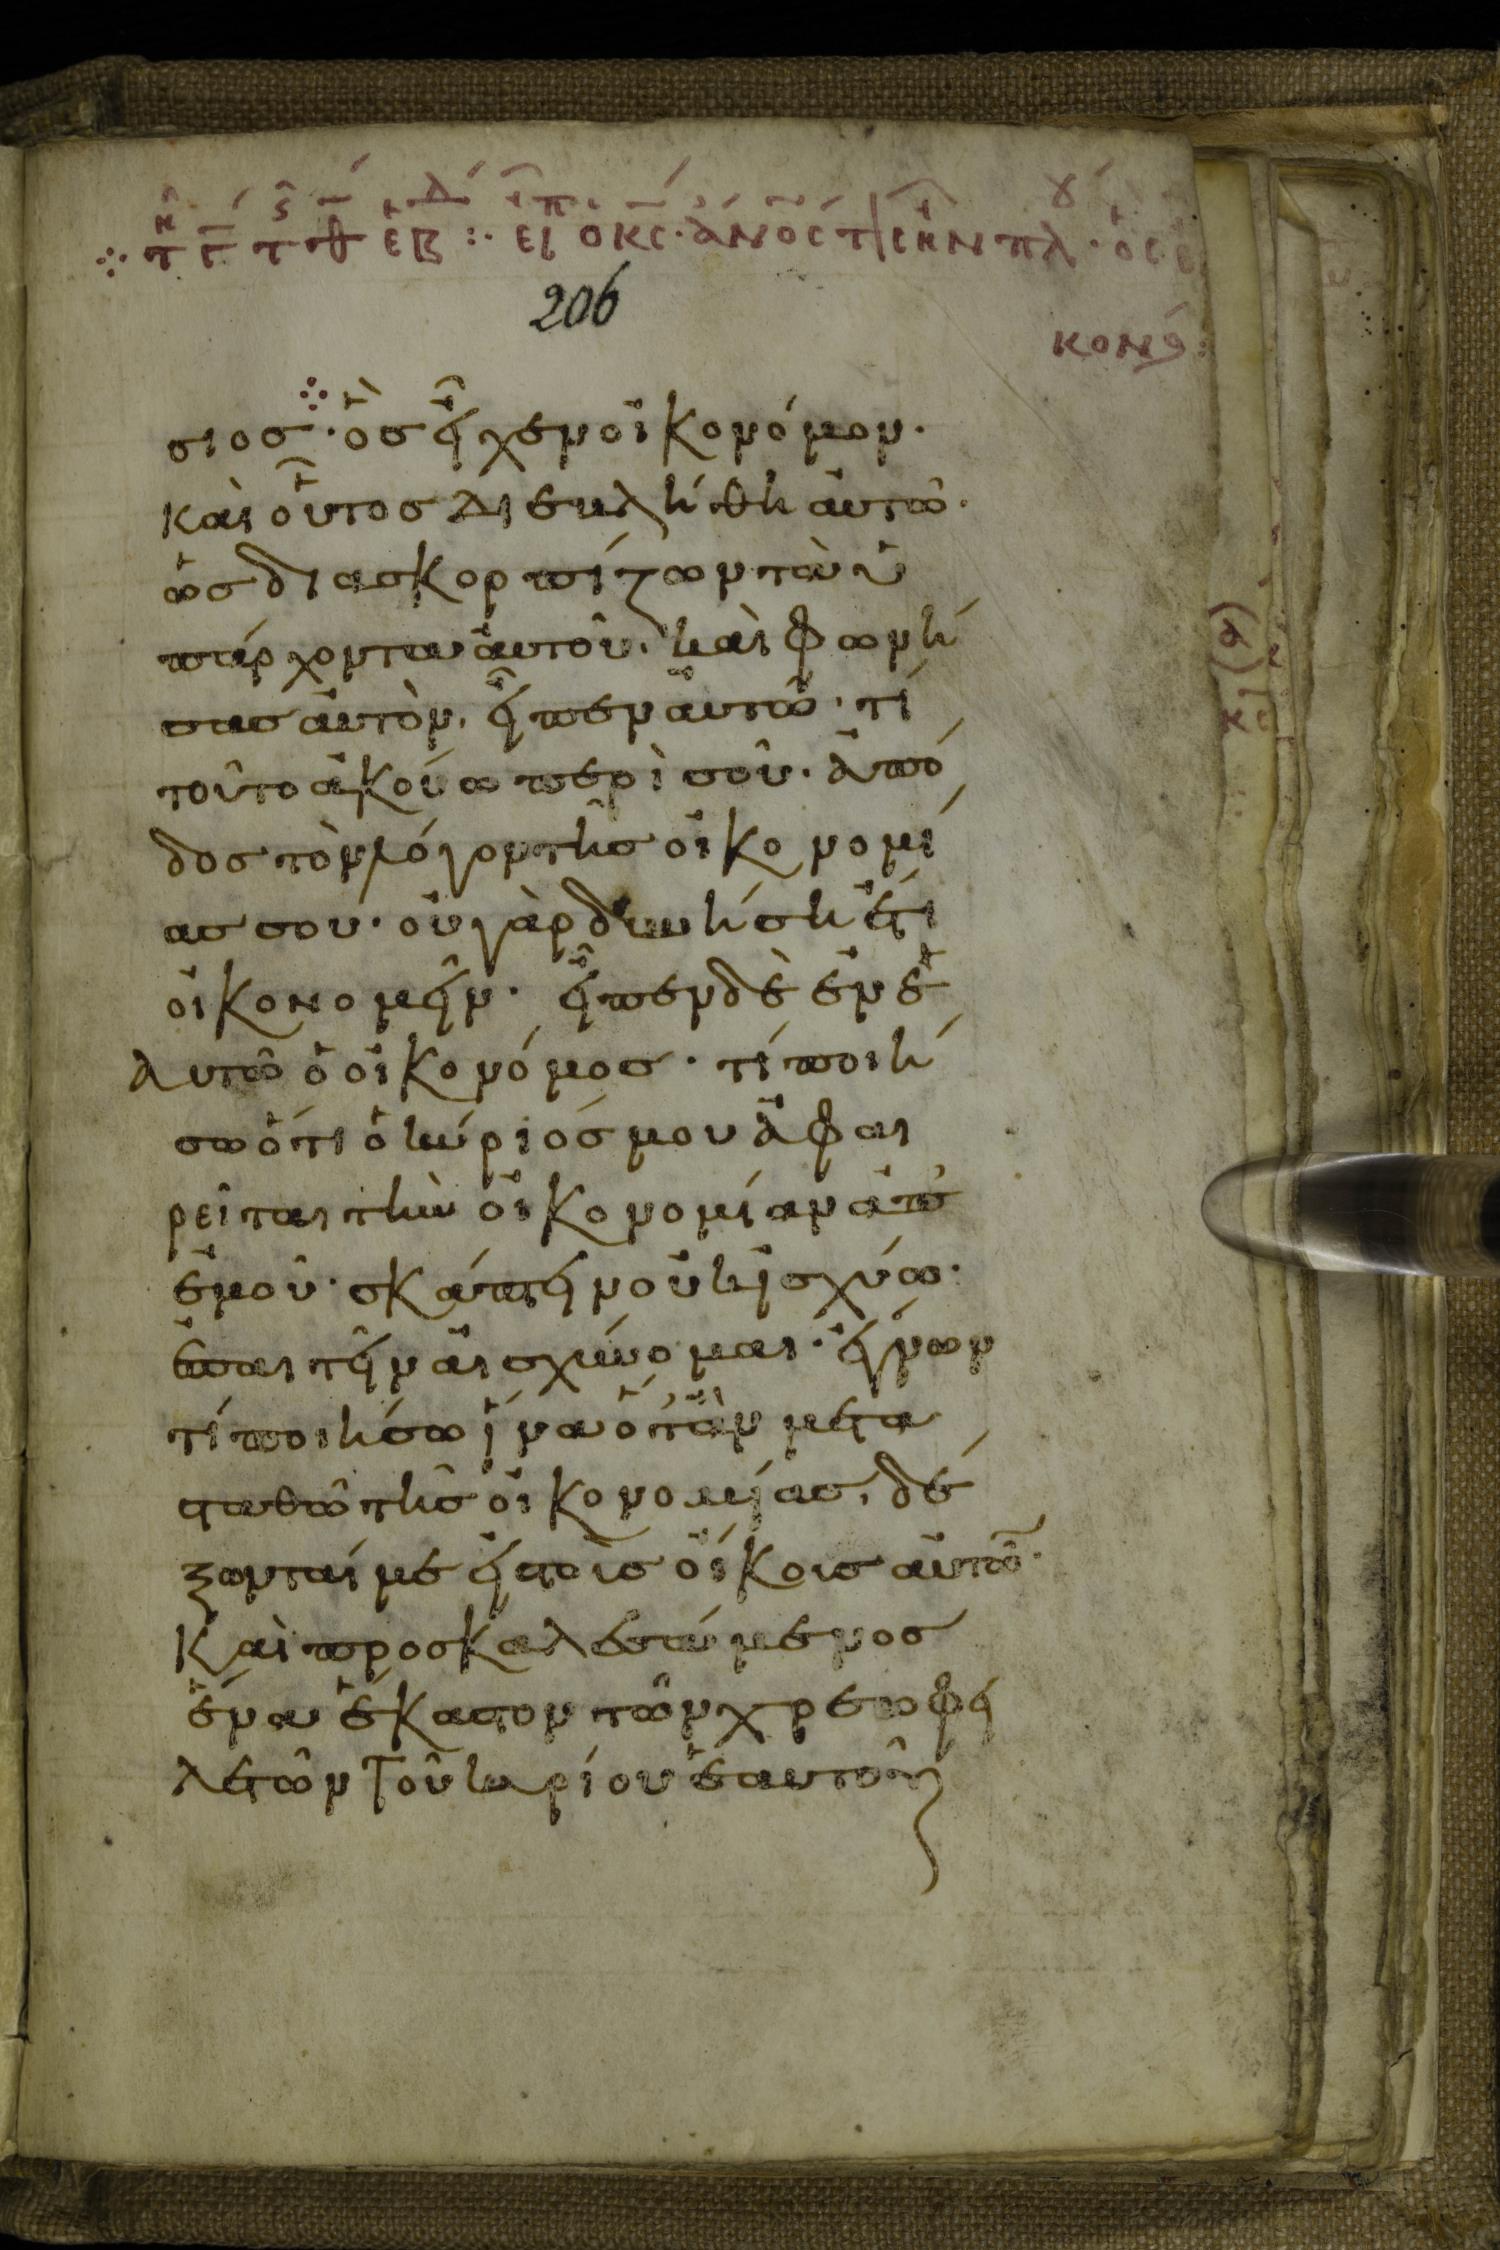 206
κονο:
σιος· ὃς εἶχεν οἰκονόμον.
καὶ οὗτος διεβλήθη αὐτῶ.
ὡς διασκορπίζων τὰ ὑ
πάρχοντα αὐτοῦ. καὶ φωνή
σας αὐτὸν, εἶπεν αὐτῶ· τί
τοῦτο ἀκούω περὶ σοῦ. ἀπό
δος τὸν λόγον τῆς οἰκονομί
ας σου· οὐ γὰρ δυνήση ἔτι
οἰκονομεῖν· εἶπεν δὲ ἐν ἑ
αυτῶ ὁ οἰκονόμος· τί ποιή
σω ὅτι ὁ κύριός μου ἀφαι
ρεῖται τὴν οἰκονομίαν ἀπ'
ἐμοῦ· σκάπτειν οὐκ ἰσχύω·
ἐπαιτεῖν αἰσχύνομαι· ἔγνων
τί ποιήσω ἵνα ὅταν μετα
σταθῶ τῆς οἰκονομίας, δέ
ξονταί με εἰς τοὺς οἴκους αὐτῶν·
Καὶ προσκαλεσάμενος
ἕνα ἕκαστον τῶν χρεωφει
λετῶν τοῦ κυρίου ἑαυτοῦ